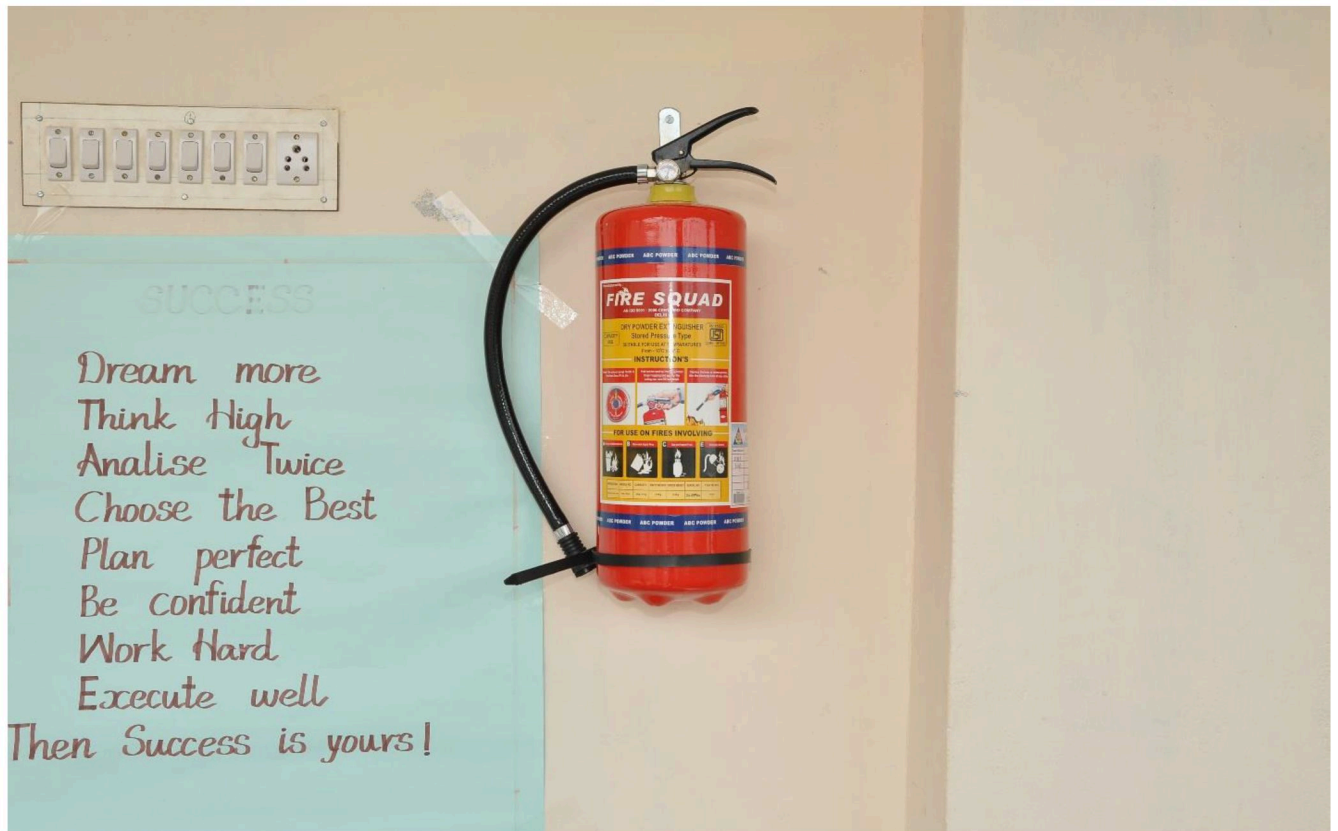 SUCCESS
Dream more
Think High
Analise Twice
Choose the Best
Plan perfect
Be confident
Work Hard
Execute well
Then Success is yours!
ABC POWDER ABC POWDER ABC POWDER
FIRE SQUAD
DRY POWDER EXTINGUISHER
Stored Pressure Type
SUITABLE FOR USE AT TEMPERATURES
INSTRUCTION'S
FOR USE ON FIRES INVOLVING
ABC POWDER ABC POWDER ABC